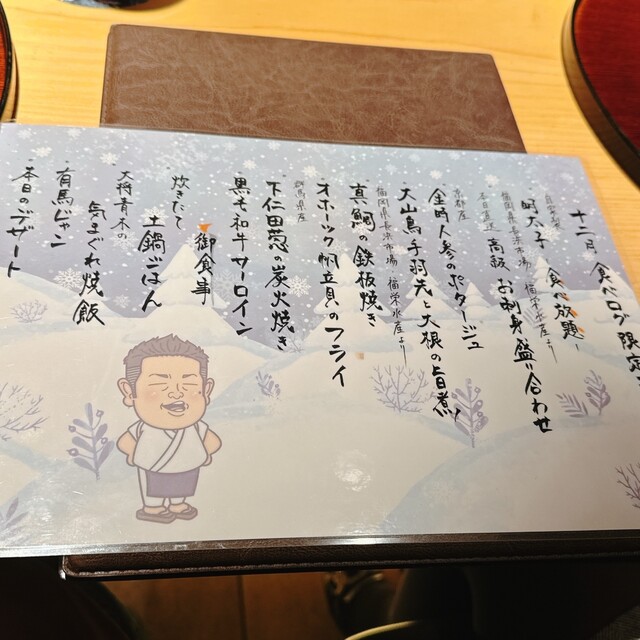 十二月 食べログ限定
明太子 食べ放題!
福岡県長浜市場・福栄水産より
本日直送 高級 お刺身盛り合わせ
京都産
金時人参のポタージュ
大山鳥手羽先と大根の旨煮
福岡県長浜市場・福栄水産より
真鯛の鉄板焼き
オホーツク帆立貝のフライ
群馬県産
下仁田葱の炭火焼き
黒毛和牛サーロイン
御食事
炊きたて
土鍋ごはん
大将青木の
気まぐれ焼飯
有馬ジャン
本日のデザート